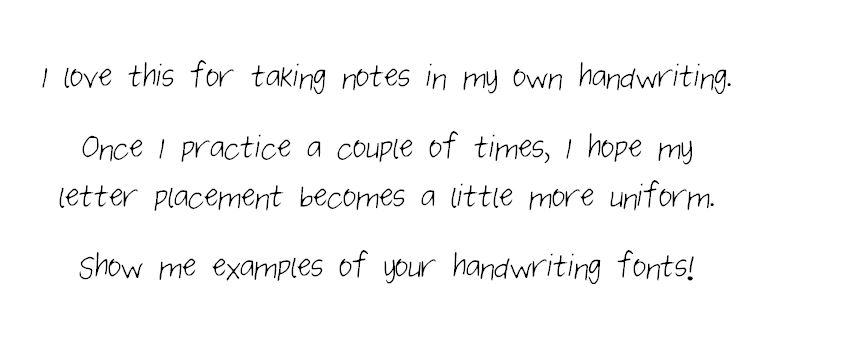 I love this for taking notes in my own handwriting.
Once I practice a couple of times, I hope my
letter placement becomes a little more uniform.
Show me examples of your handwriting fonts!